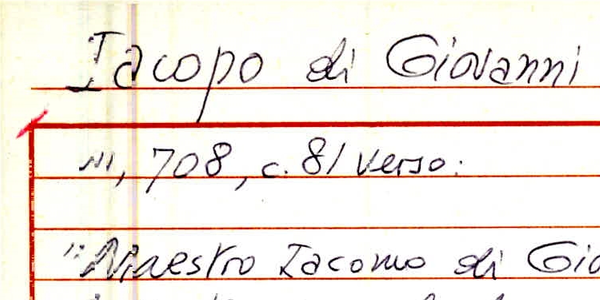 Iacopo di Giovanni
, 708, c. 81 verso:
"Maestro Iacomo di Gio